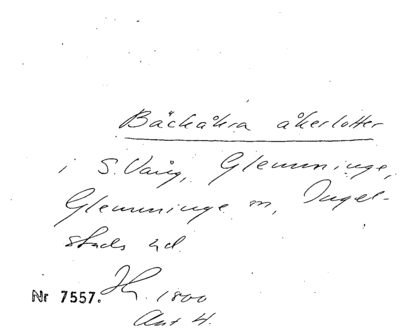 Bäckåkra åkerlotter
i S. Vång, Glemminge,
Glemminge sn, Ingel-
stads hd.
Nr 7557. 1800
Akt 4.